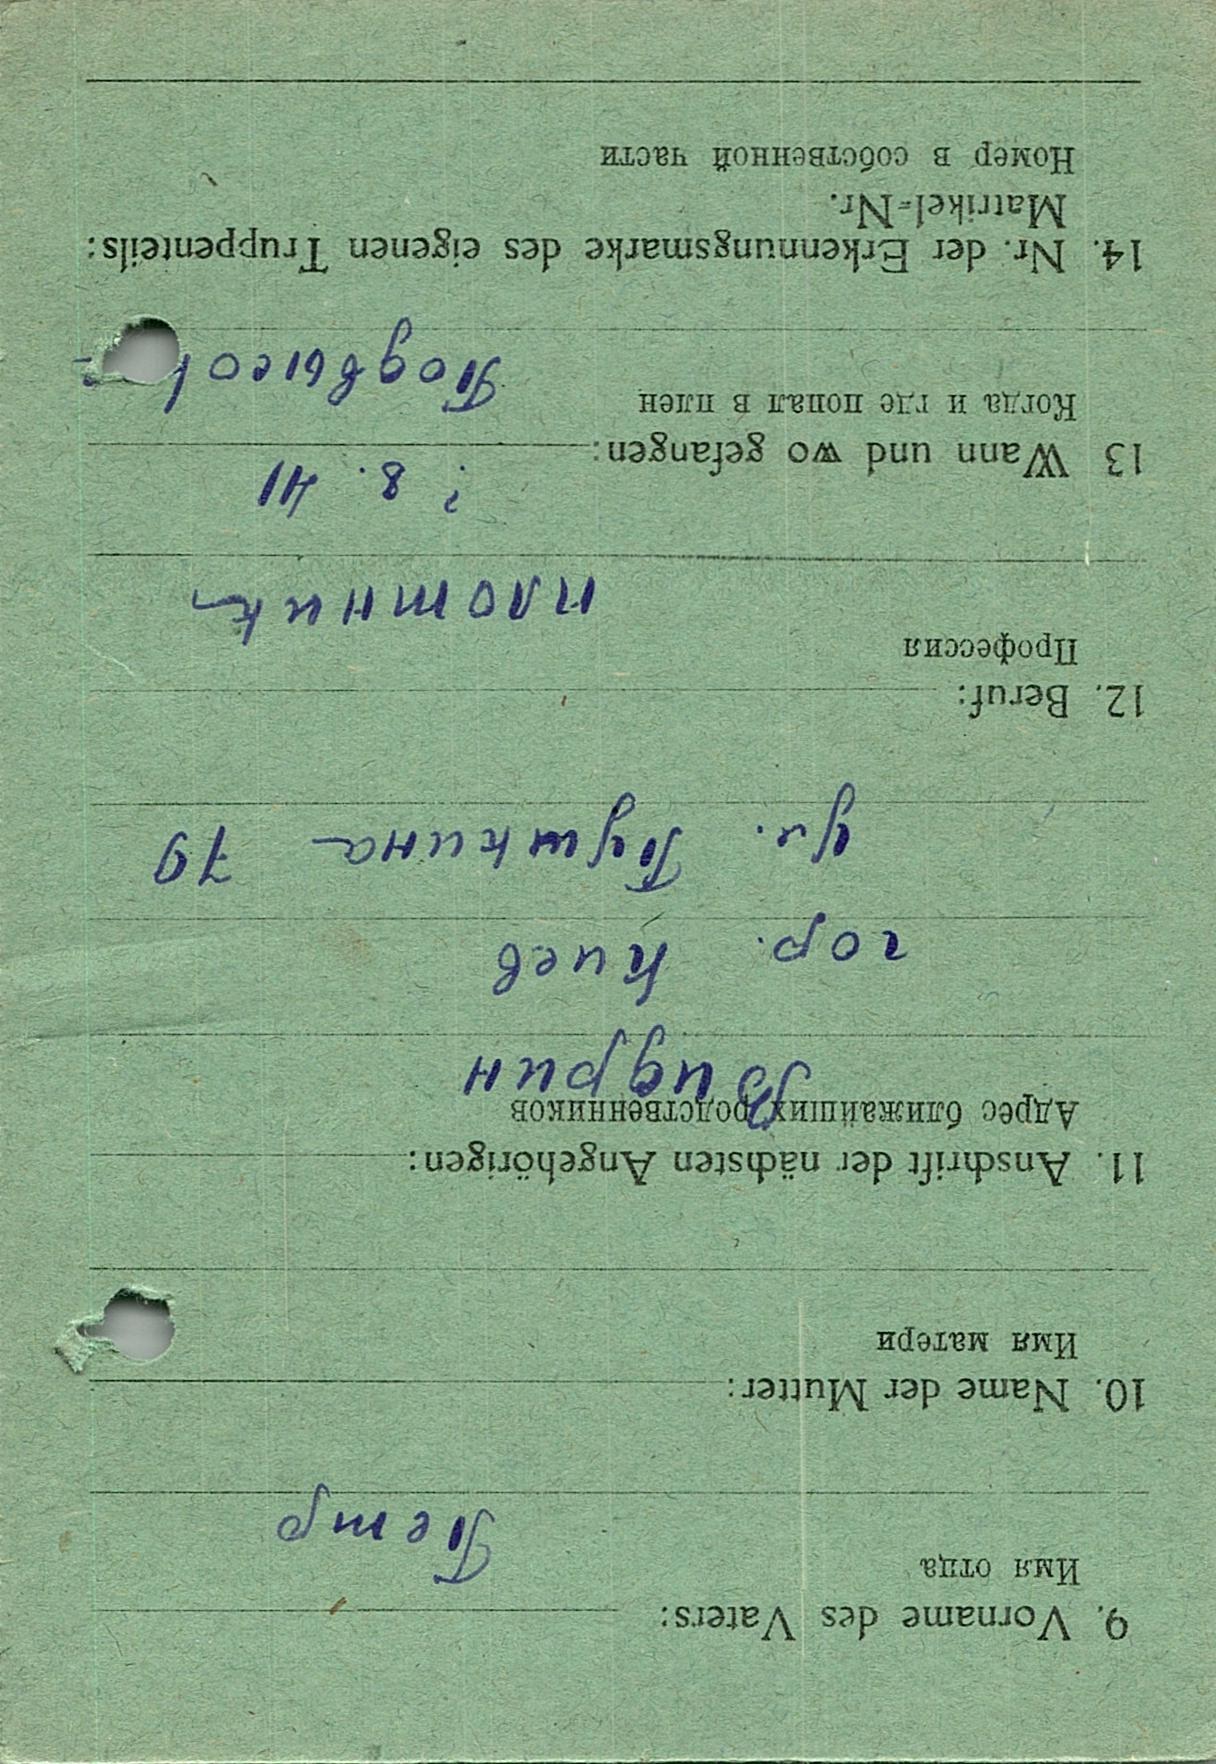 9. Vorname des Vaters:
Имя отца
Петр
10. Name der Mutter:
Имя матери
11. Anschrift der nächsten Angehörigen:
Адрес ближайших родственников
Видрин
гор. Киев
ул. Пушкина 79
12. Beruf:
Профессия
плотник
? 8. 41
13 Wann und wo gefangen:
Когда и где попал в плен
14. Nr. der Erkennungsmarke des eigenen Truppenteils:
Matrikel-Nr.
Номер в собственной части